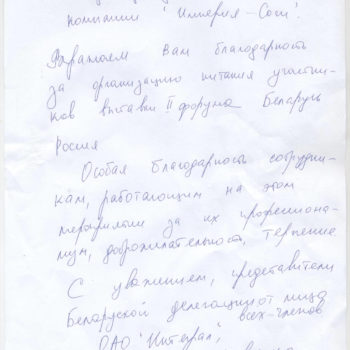 компании "Империя-Сочи".
Выражаем Вам благодарность
за организацию питания участни-
ков выставки II форума Беларусь
Россия
Особая благодарность сотрудни-
кам, работающим на этом
мероприятии за их профессиона-
лизм, доброжелательность, терпение
С уважением, представители
Беларуской делегации от лица
всех членов
ОАО "Интеграл",